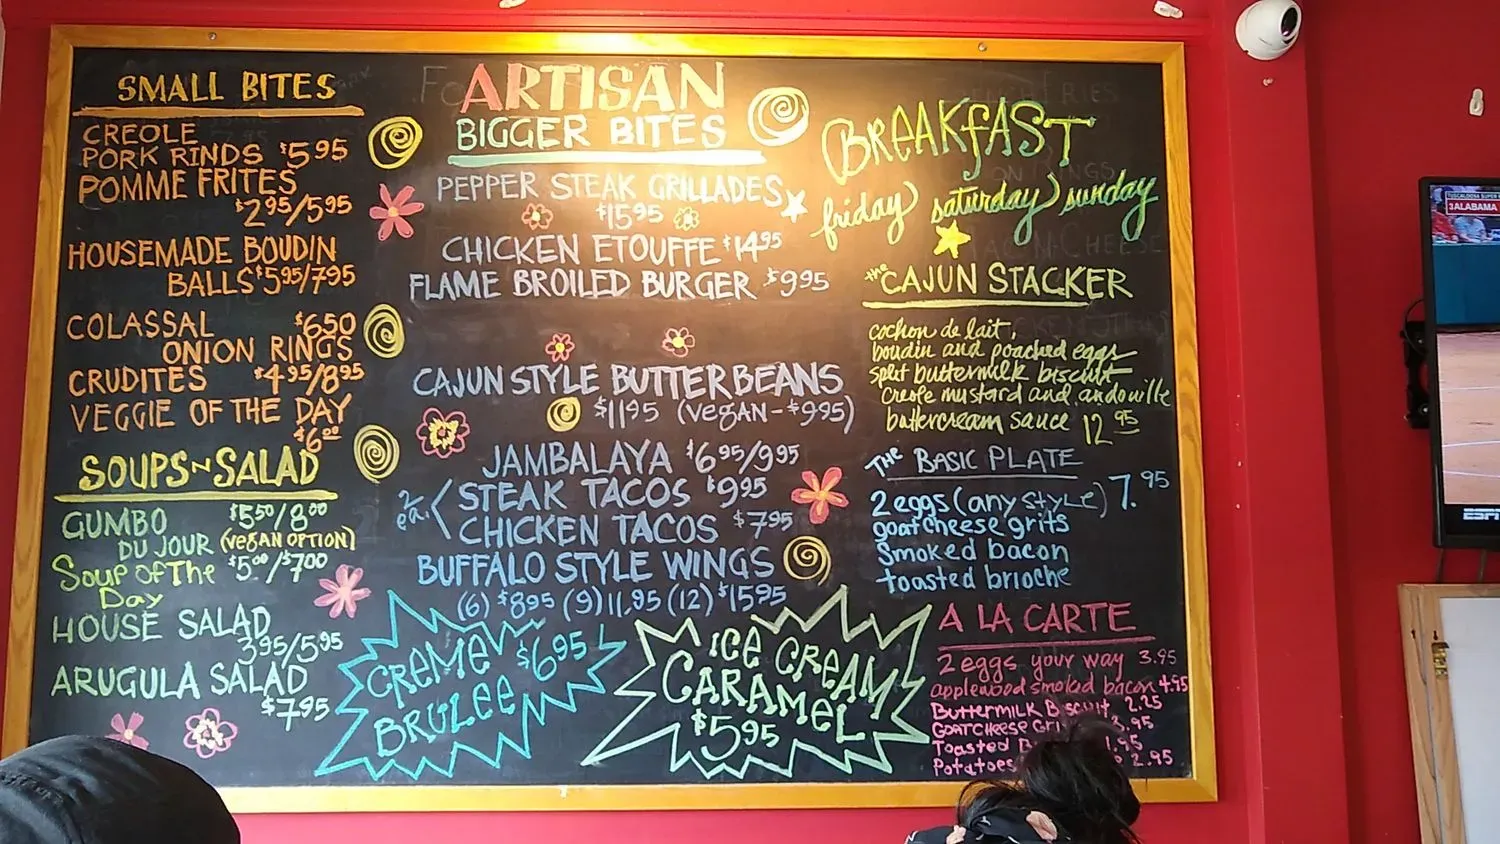 SMALL BITES
CREOLE
PORK RINDS $5.95
POMME FRITES
$2.95/5.95
HOUSEMADE BOUDIN
BALLS $5.95/7.95
COLASSAL $6.50
ONION RINGS
CRUDITES $4.95/8.95
VEGGIE OF THE DAY
$6.00
SOUPS N SALAD
GUMBO $5.50/8.00
DU JOUR (VEGAN OPTION)
Soup of The $5.00/$7.00
Day
HOUSE SALAD
3.95/5.95
ARUGULA SALAD
$7.95
ARTISAN
BIGGER BITES
PEPPER STEAK GRILLADES
$15.95
CHICKEN ETOUFFE $14.95
FLAME BROILED BURGER $9.95
CAJUN STYLE BUTTERBEANS
$11.95 (VEGAN-$9.95)
JAMBALAYA $6.95/9.95
2 ea. < STEAK TACOS $9.95
CHICKEN TACOS $7.95
BUFFALO STYLE WINGS
(6) $8.95 (9) 11.95 (12) $15.95
CREME $6.95
BRULEE
ICE CREAM
CARAMEL
$5.95
BREAKfAST
friday) saturday) sunday
the CAJUN STACKER
cochon de lait,
boudin and poached eggs
split buttermilk biscuit
creole mustard and andouille
buttercream sauce 12.95
THE BASIC PLATE
2 eggs (any STYLE) 7.95
goat cheese grits
Smoked bacon
toasted brioche
A LA CARTE
2 eggs your way 3.95
applewood smoked bacon 4.95
Buttermilk Biscuit 2.25
Goat cheese 3.95
Toasted 1.95
Potatoes 2.95
TUSCALOOSA SUPER
3 ALABAMA